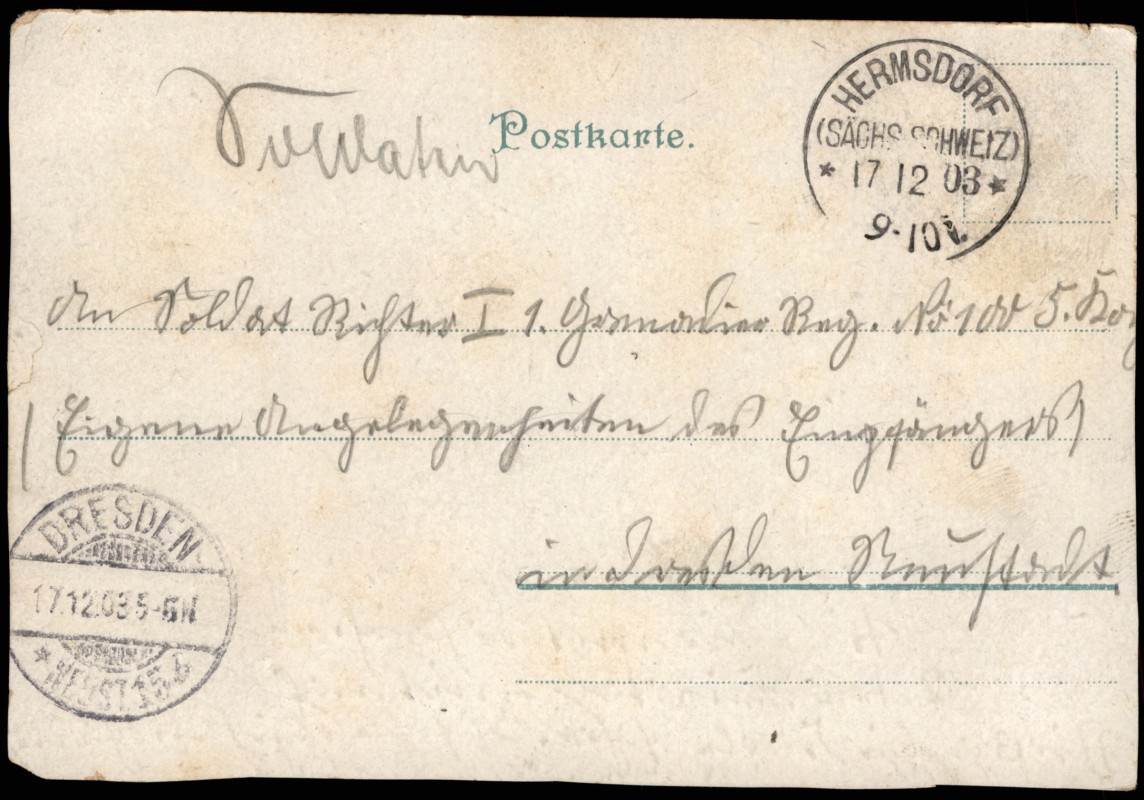 Soldaten
Postkarte.
HERMSDORF
(SÄCHS. SCHWEIZ)
* 17 12 03 *
9-10V.
An Soldat Richter I 1. Grenadier Reg. No 100 5. Kom
(Eigene Angelegenheiten des Empfängers)
in Dresden Neustadt
DRESDEN
17.12.03 5-6N